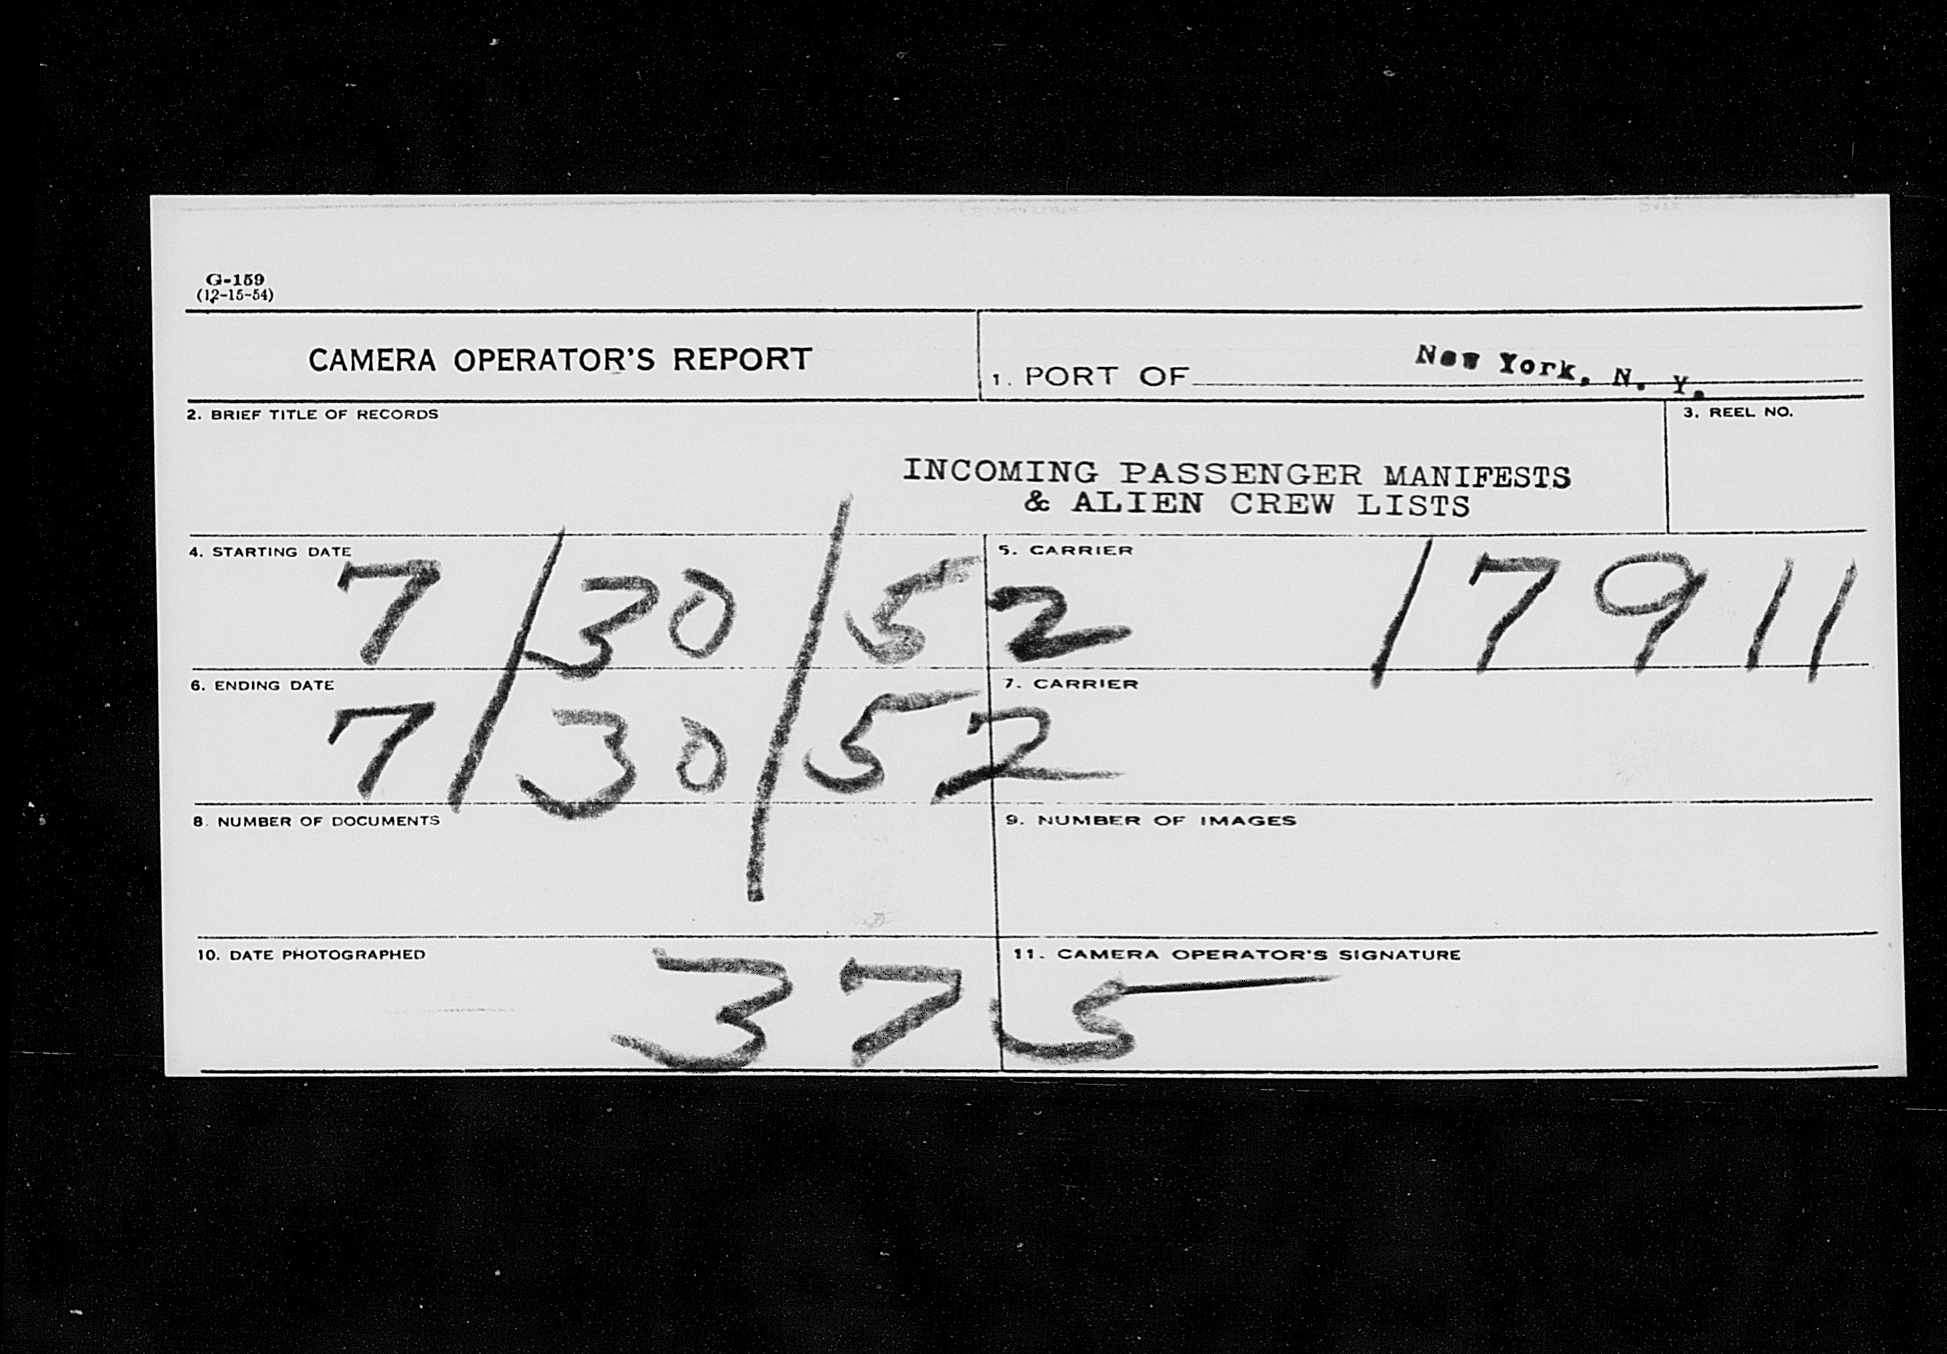 G-159
(12-15-54)
CAMERA OPERATOR'S REPORT
1. PORT OF New York, N. Y.
2. BRIEF TITLE OF RECORDS
3. REEL NO.
INCOMING PASSENGER MANIFESTS
& ALIEN CREW LISTS
4. STARTING DATE
7/30/52
5. CARRIER
17911
6. ENDING DATE
7/30/52
7. CARRIER
8. NUMBER OF DOCUMENTS
9. NUMBER OF IMAGES
10. DATE PHOTOGRAPHED
11. CAMERA OPERATOR'S SIGNATURE
375